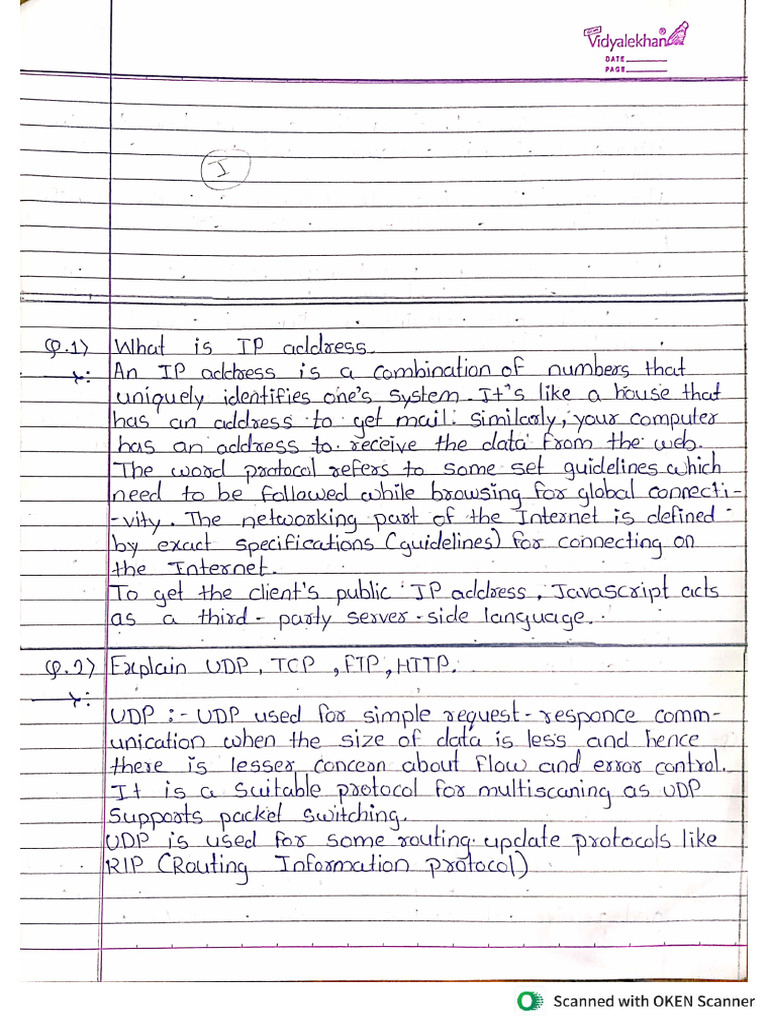 Vidyalekhan®
DATE
PAGE
I
Q.1) What is IP address.
An IP address is a combination of numbers that
uniquely identifies one's system. It's like a house that
has an address to get mail. Similarly, your computer
has an address to receive the data from the web.
The word protocol refers to some set guidelines which
need to be followed while browsing for global connecti-
-vity. The networking part of the Internet is defined
by exact specifications (guidelines) for connecting on
the Internet.
To get the client's public IP address, Javascript acts
as a third-party server-side language.
Q.2) Explain UDP, TCP, FTP, HTTP.
UDP :- UDP used for simple request-responce comm-
unication when the size of data is less and hence
there is lesser concern about flow and error control.
It is a suitable protocol for multiscaning as UDP
Supports packet switching.
UDP is used for some routing update protocols like
RIP (Routing Information protocol)
Scanned with OKEN Scanner